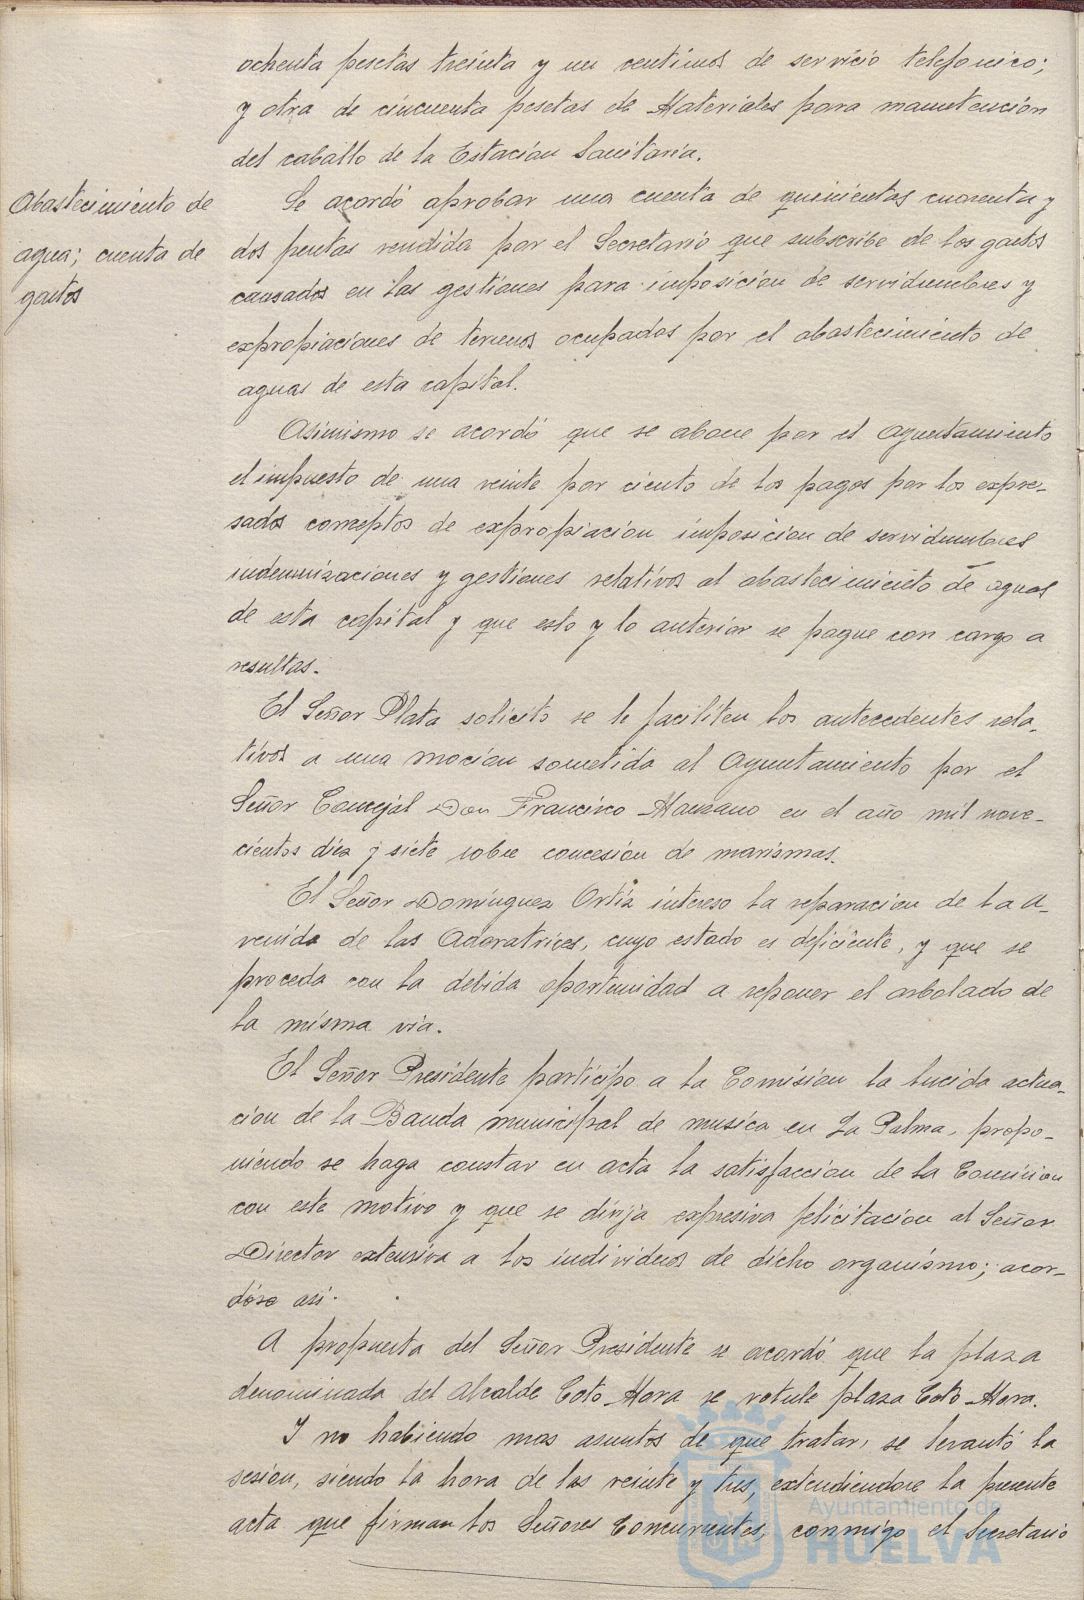 ochenta pesetas treinta y un centimos de servicio telefonico;
y otra de cincuenta pesetas de Materiales para manutencion
del caballo de la Estación Sanitaria.
Abastecimiento de
agua; cuenta de
gastos
Se acordó aprobar una cuenta de quinientas cuarenta y
dos pesetas rendida por el Secretario que subscribe de los gastos
causados en las gestiones para imposición de servidumbres y
expropiaciones de terrenos ocupados por el abastecimiento de
aguas de esta capital.
Asimismo se acordó que se abone por el Ayuntamiento
el impuesto de una veinte por ciento de los pagos por los expre-
sados conceptos de expropiacion imposicion de servidumbres
indemnizaciones y gestiones relativos al abastecimiento de aguas
de esta capital y que esto y lo anterior se pague con cargo a
resultas.
El Señor Plata solicito se le faciliten los antecedentes rela-
tivos a una mocion sometida al Ayuntamiento por el
Señor Concejal Don Francisco Manzano en el año mil nove-
cientos diez y siete sobre concesion de marismas.
El Señor Dominguez Ortiz intereso la reparacion de la a-
venida de las Adoratrices, cuyo estado es deficiente, y que se
proceda con la debida oportunidad a reponer el arbolado de
la misma via.
El Señor Presidente participo a la Comision la lucida actua-
cion de la Banda municipal de musica en La Palma, propo-
niendo se haga constar en acta la satisfaccion de la Comision
con este motivo y que se dirija expresiva felicitacion al Señor
Director extensiva a los individuos de dicho organismo; acor-
dóse asi.
A propuesta del Señor Presidente se acordó que la plaza
denominada del Alcalde Coto Mora se rotule plaza Coto Mora.
Y no habiendo mas asuntos de que tratar, se levantó la
sesion, siendo la hora de las veinte y tres, extendiendose la presente
acta que firman los Señores Concurrentes, conmigo el Secretario
Ayuntamiento de
HUELVA